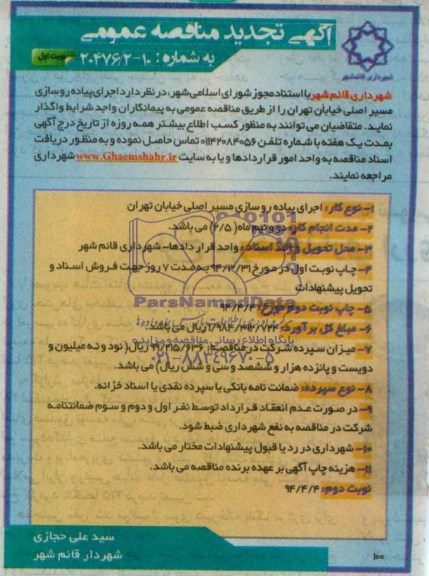 آگهی تجدید مناقصه عمومی
به شماره: ۱۰-۲۰۴۷۶/۲
نوبت اول
شهرداری قائمشهر
شهرداری قائم شهر با استناد مجوز شورای اسلامی شهر، در نظر دارد اجرای پیاده رو سازی
مسیر اصلی خیابان تهران را از طریق مناقصه عمومی به پیمانکاران واجد شرایط واگذار
نماید. متقاضیان می توانند به منظور کسب اطلاع بیشتر همه روزه از تاریخ درج آگهی
بمدت یک هفته با شماره تلفن ۰۱۱۴۲۰۸۴۰۵۶ تماس حاصل نموده و به منظور دریافت
اسناد مناقصه به واحد امور قراردادها و یا به سایت www.Ghaemshahr.ir شهرداری
مراجعه نمایند.
۱- نوع کار: اجرای پیاده رو سازی مسیر اصلی خیابان تهران
۲- مدت انجام کار: دو و نیم ماه (۲/۵) می باشد.
۳- محل تحویل و اخذ اسناد: واحد قراردادها- شهرداری قائم شهر
۴- چاپ نوبت اول در مورخ به مدت ۷ روز جهت فروش اسناد و
تحویل پیشنهادات
۵- چاپ نوبت دوم مورخ: ۹۴/۴/۴
۶- مبلغ کل برآورد: ریال می باشد.
۷- میزان سپرده شرکت در مناقصه: ۹۹/۲۱۵/۶۳۶ ریال( نود و نه میلیون و
دویست و پانزده هزار و ششصد و سی و شش ریال) می باشد.
۸- نوع سپرده: ضمانت نامه بانکی یا سپرده نقدی یا اسناد خزانه.
۹- در صورت عدم انعقاد قرارداد توسط نفر اول و دوم و سوم ضمانتنامه
شرکت در مناقصه به نفع شهرداری ضبط شود.
۱۰- شهرداری در رد یا قبول پیشنهادات مختار می باشد.
۱۱- هزینه چاپ آگهی بر عهده برنده مناقصه می باشد.
نوبت دوم: ۹۴/۴/۴
سید علی حجازی
شهردار قائم شهر
۱۰۰
ParsNamadData
پایگاه اطلاع رسانی مناقصه و مزایده
۰۲۱-۸۸۳۴۹۶۷۰-۵